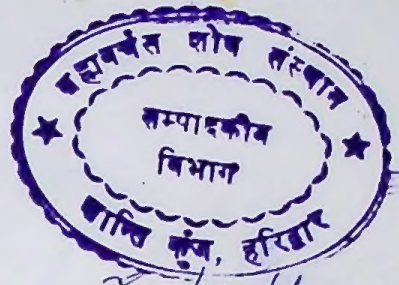 ब्रह्मवर्चस शोध संस्थान
सम्पादकीय
विभाग
शान्ति कुंज, हरिद्वार